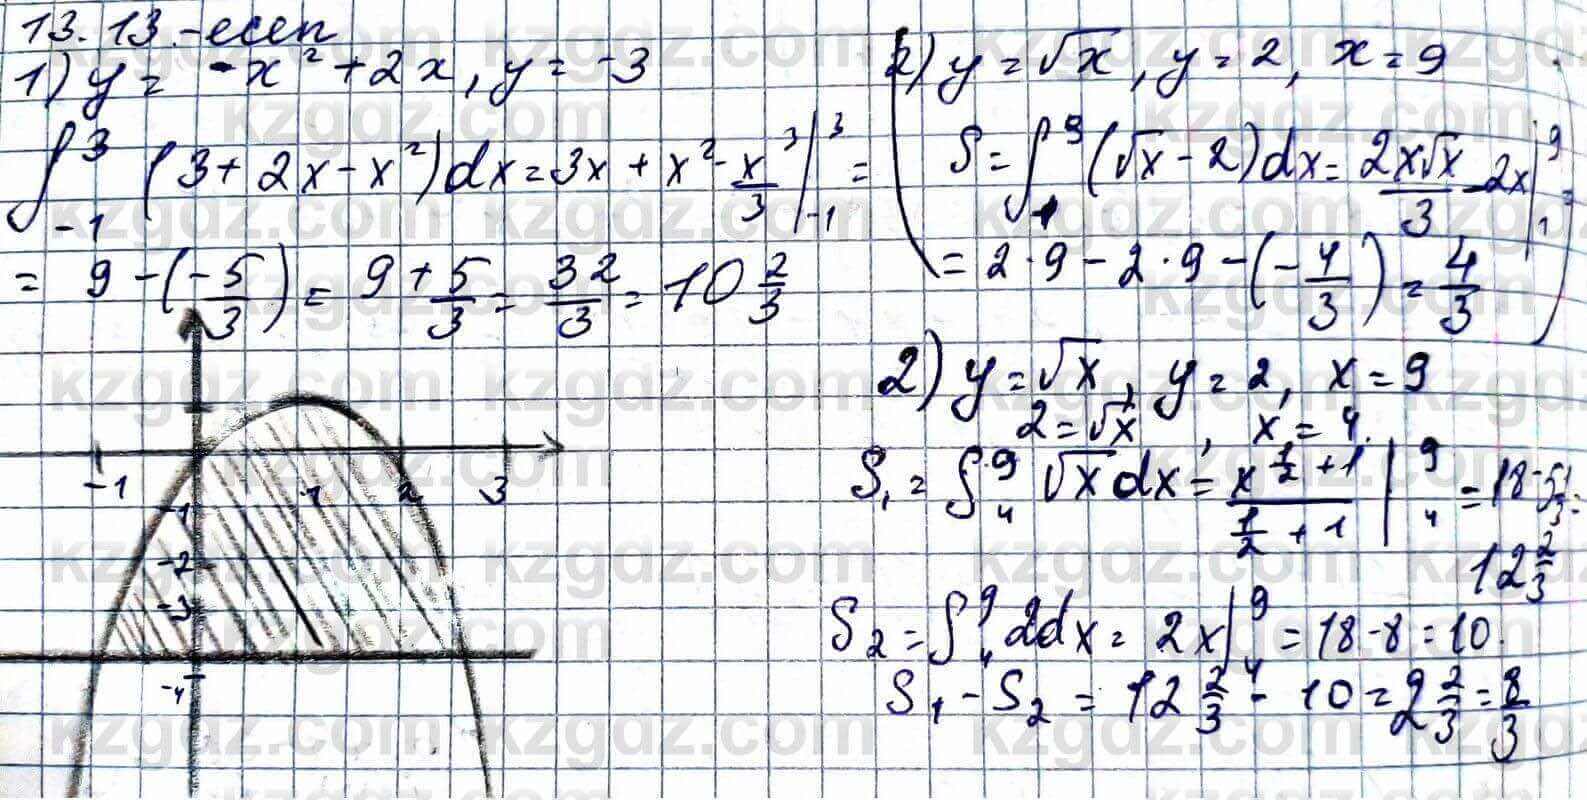 13.13.-есеп
1) y = -x² + 2x, y = -3
∫₋₁³ (3 + 2x - x²)dx = 3x + x² - x³/3 |₋₁³ =
= 9 - (-5/3) = 9 + 5/3 = 32/3 = 10 2/3
-1 1 2 3
-1
-2
-3
-4
2) y = √x, y = 2, x = 9
S = ∫₁⁹ (√x - 2)dx = 2x√x/3 - 2x |₁⁹ =
= 2·9 - 2·9 - (-4/3) = 4/3
2) y = √x, y = 2, x = 9
2 = √x, x = 4.
S₁ = ∫₄⁹ √x dx = x^(1/2 + 1)/(1/2 + 1) |₄⁹ = 18 - 5 1/3 =
12 2/3
S₂ = ∫₄⁹ 2dx = 2x |₄⁹ = 18 - 8 = 10.
S₁ - S₂ = 12 2/3 - 10 = 2 2/3 = 8/3
kzgdz.com